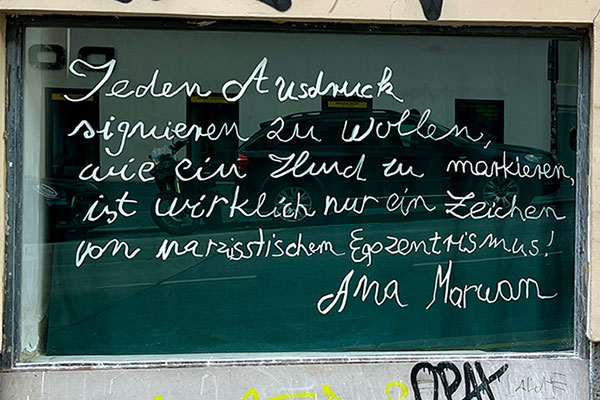 Jeden Ausdruck
signieren zu wollen,
wie ein Hund zu markieren,
ist wirklich nur ein Zeichen
von narzisstischem Egozentrismus!
Ana Marwan
OPAK